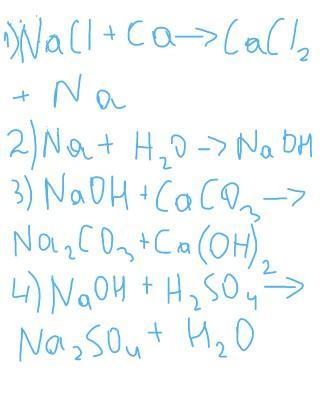 1) NaCl + Ca → CaCl₂
+ Na
2) Na + H₂O → NaOH
3) NaOH + CaCO₃ →
Na₂CO₃ + Ca(OH)₂
4) NaOH + H₂SO₄ →
Na₂SO₄ + H₂O